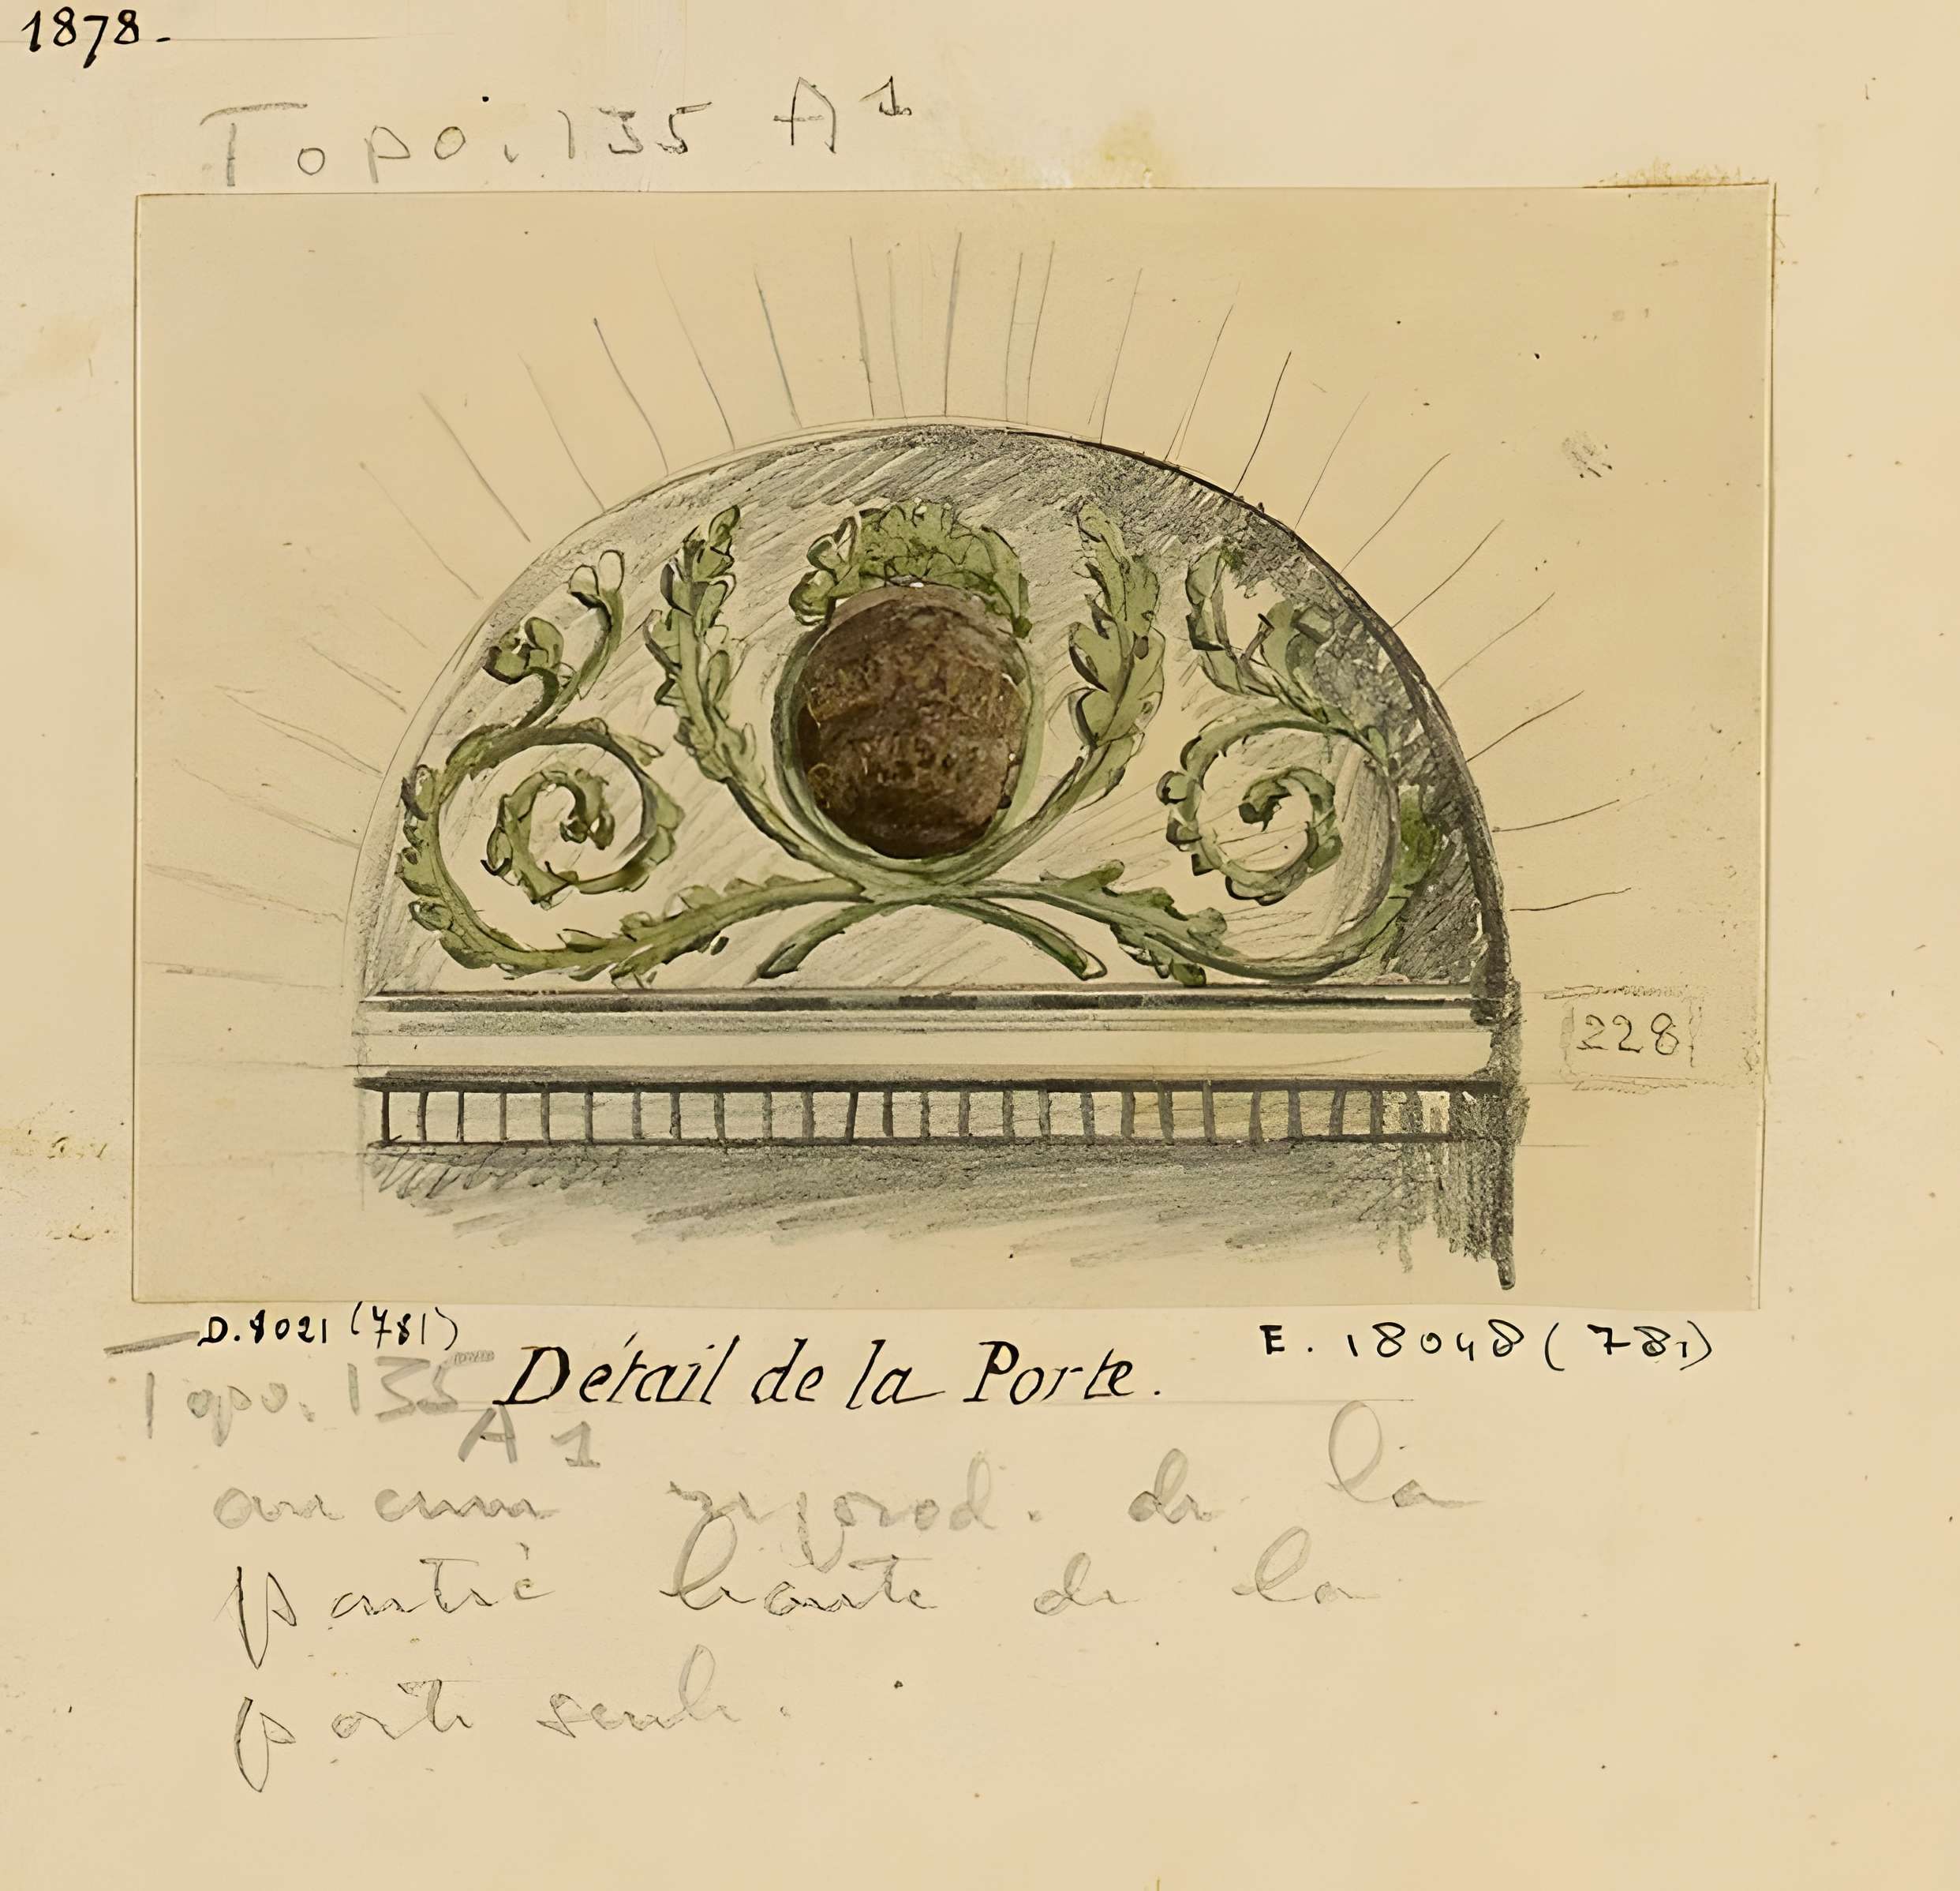 1878.
Topo. 135 A1
228
D.8021 (781)
E. 18048 (781)
Détail de la Porte.
Topo. 135
A1
aucune reprod. de la
partie haute de la
porte seule.